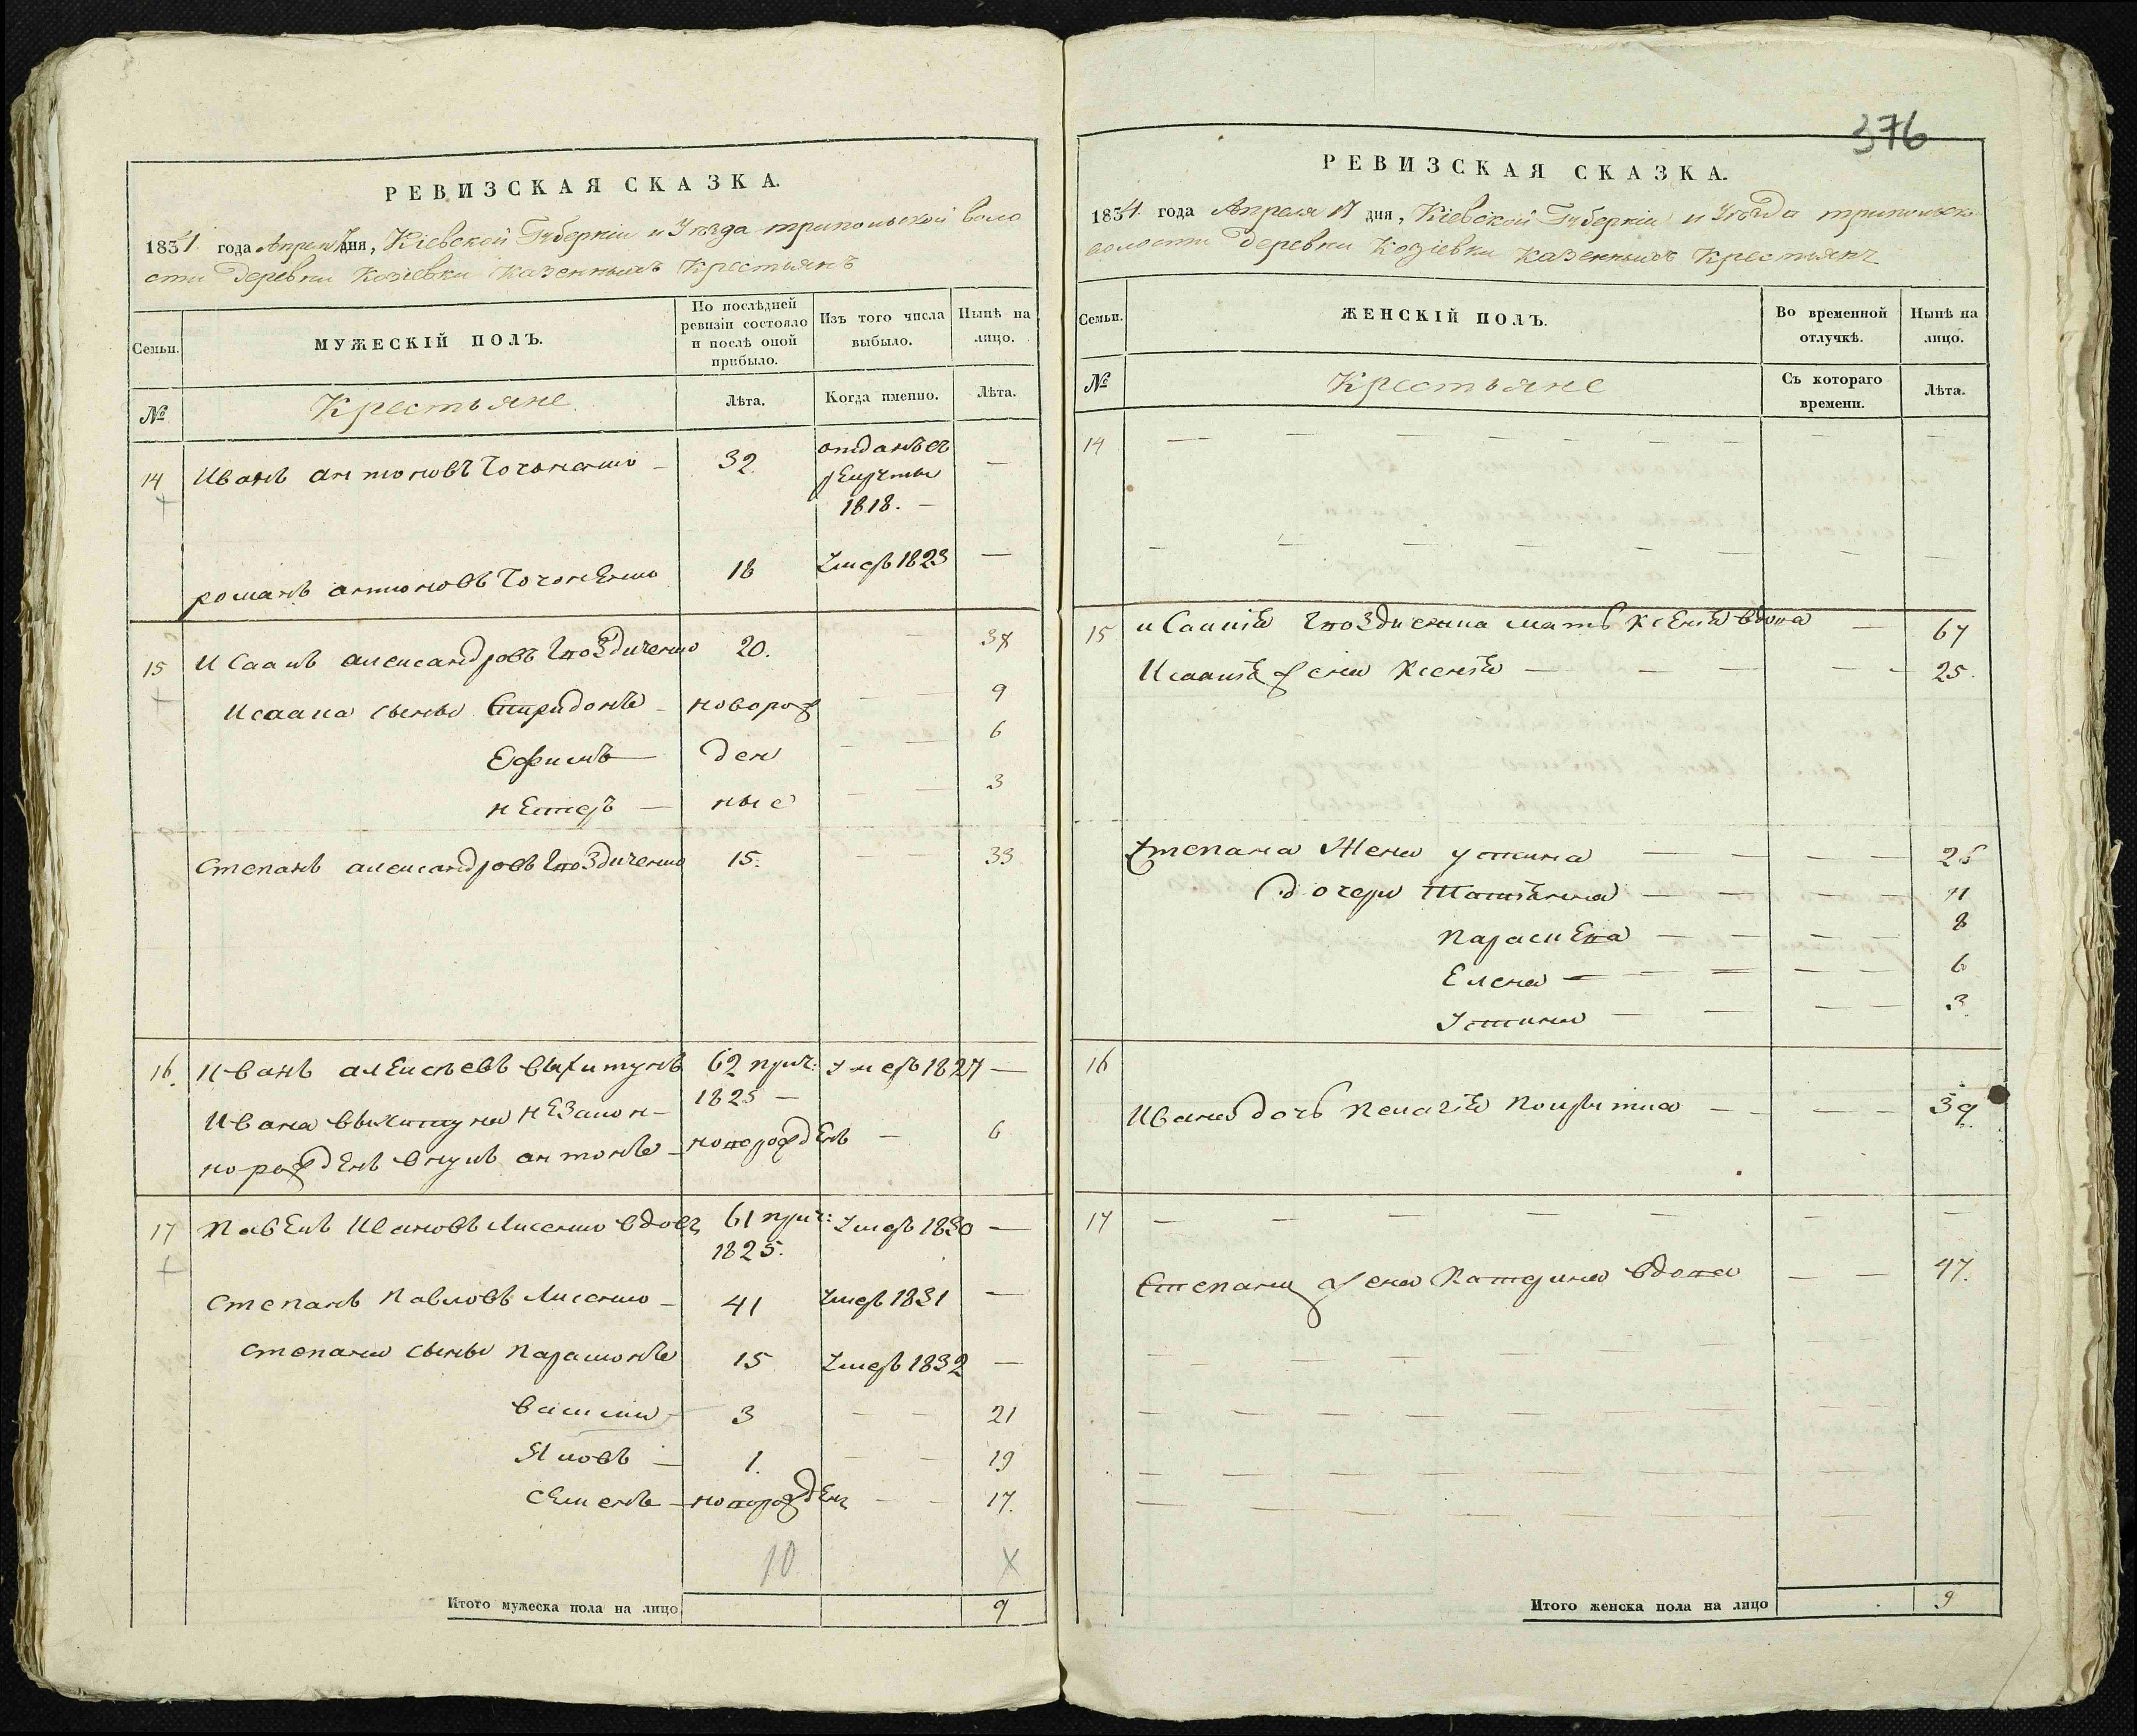 РЕВИЗСКАЯ СКАЗКА.
1834 года Апреля дня, Кіевской Губерніи и Уезда трипольской воло
сти деревни Козіевки казенныхъ Крестьянъ
Семьи.
МУЖЕСКІЙ ПОЛЪ.
По послѣдней ревизіи состояло и послѣ оной прибыло.
Изъ того числа выбыло.
Нынѣ на лицо.
№
Крестьяне
Лѣта.
Когда именно.
Лѣта.
14 Иванъ антоновъ 32 отданъ въ рекруты 1818. —
романъ антоновъ 18 Умеръ 1823 —
15 Исакъ александровъ Гвоздиченко 20. 38
Исаака сыны Спиридонъ новорож 9
Ефимъ ден 6
нестеръ ные 3
Степанъ александровъ Гвоздиченко 15. 33
16. Иванъ алексѣевъ 62 прич: 1825 — умеръ 1827 —
Ивана незакон-
норожденъ внукъ антонъ новорожденъ — 6
17 Павелъ Ивановъ Лисенко вдовъ 61 прич: 1825. Умеръ 1830 —
Степанъ Павловъ Лисенко 41 Умеръ 1831 —
Степана сыны Парамонъ 15 Умеръ 1832 —
василий 3 21
Яковъ 1. 19
семенъ новорожден 17.
10 X
Итого мужеска пола на лицо 9
376
РЕВИЗСКАЯ СКАЗКА.
1834 года Апреля 17 дня, Кіевской Губерніи и Уезда трипольской
волости деревни Козіевки казенныхъ Крестьянъ
Семьи.
ЖЕНСКІЙ ПОЛЪ.
Во временной отлучкѣ.
Нынѣ на лицо.
№
Крестьяне
Съ котораго времени.
Лѣта.
14
15 мать ксенія вдова — 67
жена Ксенія 25.
Степана Жена устина
дочери Татіанна 11
Параскева 8
Елена 6
Устина 3
16
Ивана дочь Пелагія 39
17
Степана жена Катерина вдова 47.
Итого женска пола на лицо 9